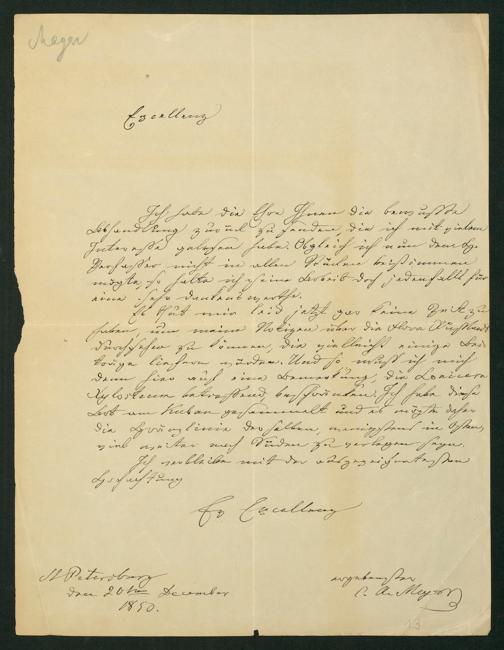 Meyer
Excellenz
Ich habe die Ehre Ihnen die bewußte
Abhandlung zurück zu senden, die ich mit vielem
Interesse gelesen habe. Obgleich ich nun dem H.
Verfasser nicht in allen Stücken beistimmen
möchte, so halte ich seine Arbeit doch jedenfalls für
eine sehr dankenswerthe.
Es thut mir leid jetzt gar keine Zeit zu
haben, um meine Notizen über die Flora Rußlands
durchsehen zu können, die vielleicht einige Bei-
träge liefern würden. Und so muß ich mich
denn hier auf eine Bemerkung, die Lonicera
Xylosteum betreffend, beschränken. Ich habe diese
Art am Kuban gesammelt und es möchte daher
die Gränzlinie derselben, wenigstens im Osten,
viel weiter nach Süden zu verlegen seyn.
Ich verbleibe mit der ausgezeichnetesten
Hochachtung
Ew Excellenz
St Petersburg
den 20ten December
1850.
ergebenster
C. A. Meyer